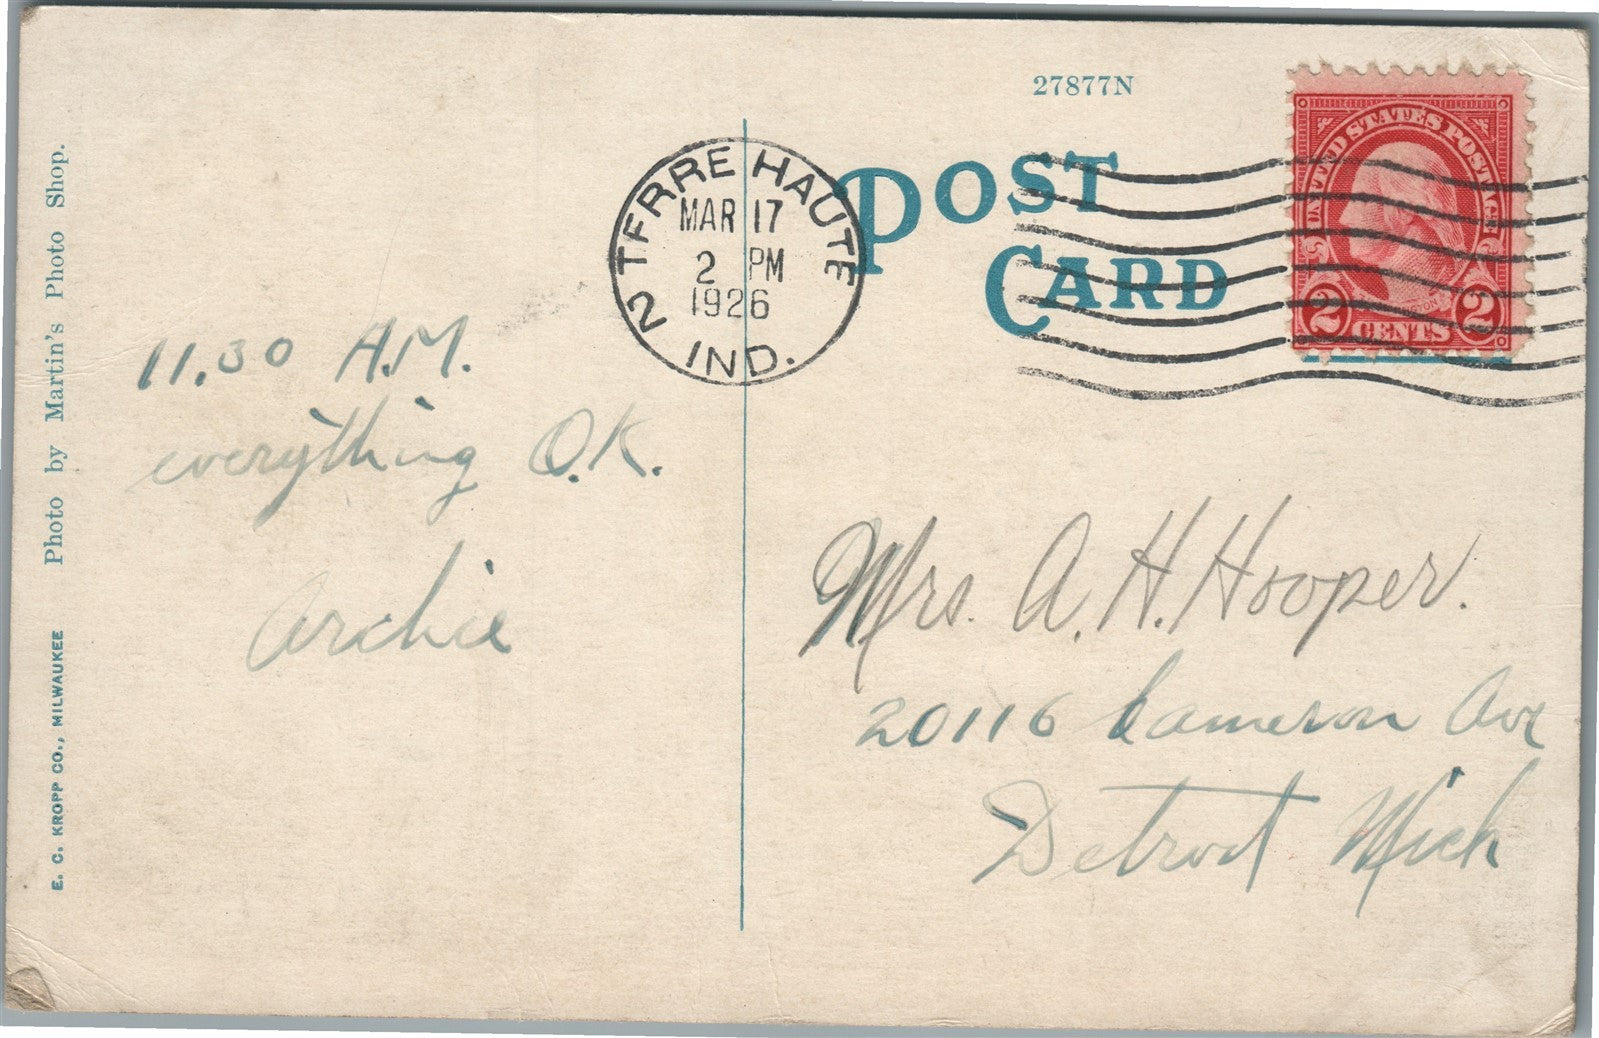 27877N
POST
CARD
UNITED STATES POSTAGE
2 CENTS 2
TERRE HAUTE
MAR 17
2 PM
1926
2 IND.
11.30 A.M.
everything O.K.
Archie
Mrs. A. H. Hooper.
20116 Cameron Ave
Detroit Mich
Photo by Martin's Photo Shop.
E. C. KROPP CO., MILWAUKEE